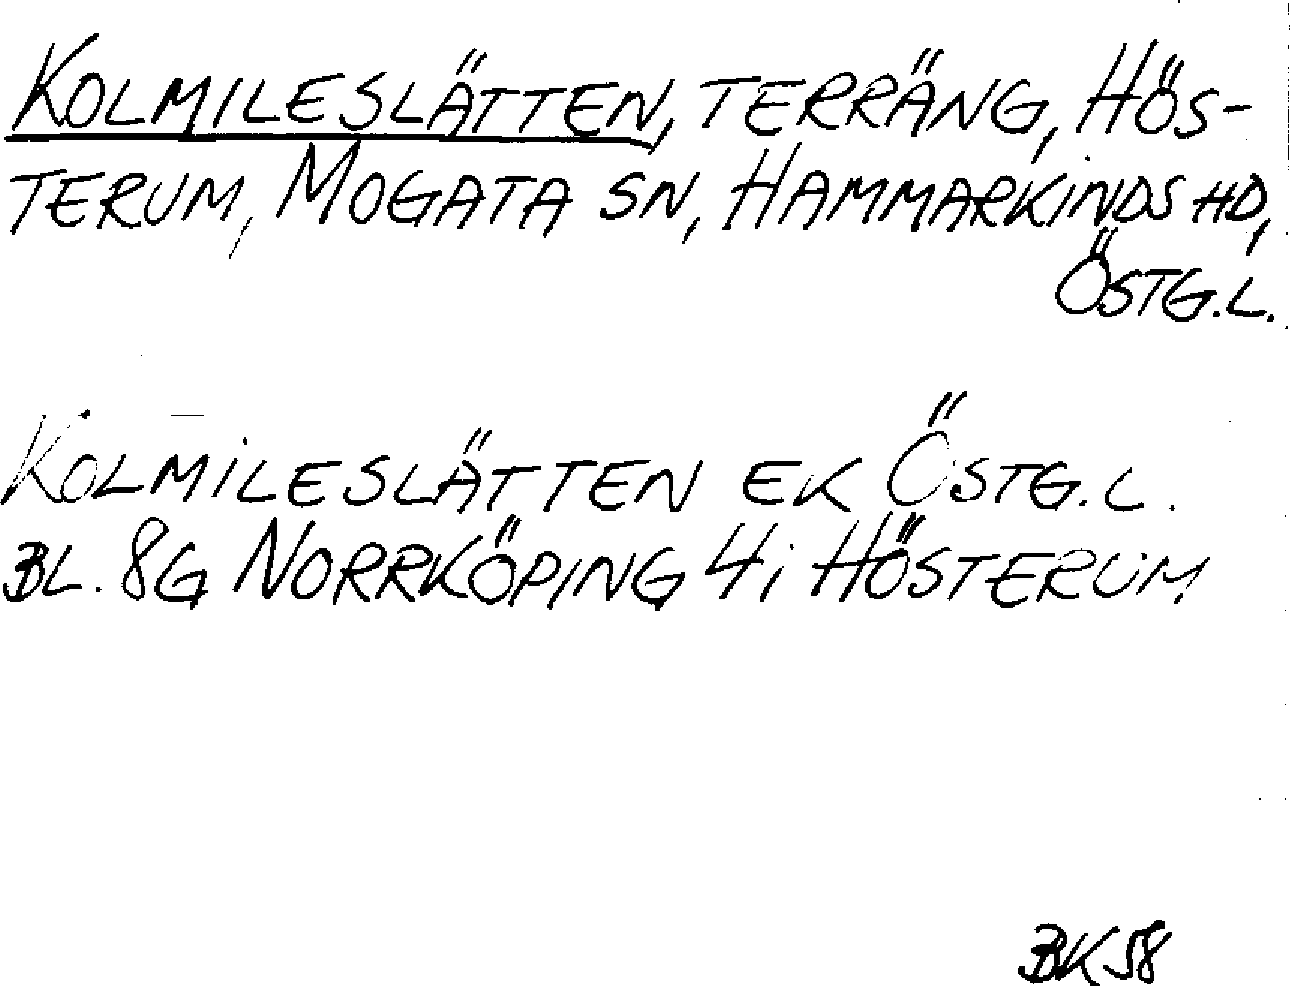 KOLMILESLÄTTEN, TERRÄNG, HÖS-
TERUM, MOGATA SN, HAMMARKINDS HD,
ÖSTG.L.
KOLMILESLÄTTEN EK ÖSTG.L.
BL. 8G NORRKÖPING 4i HÖSTERUM
BK 58